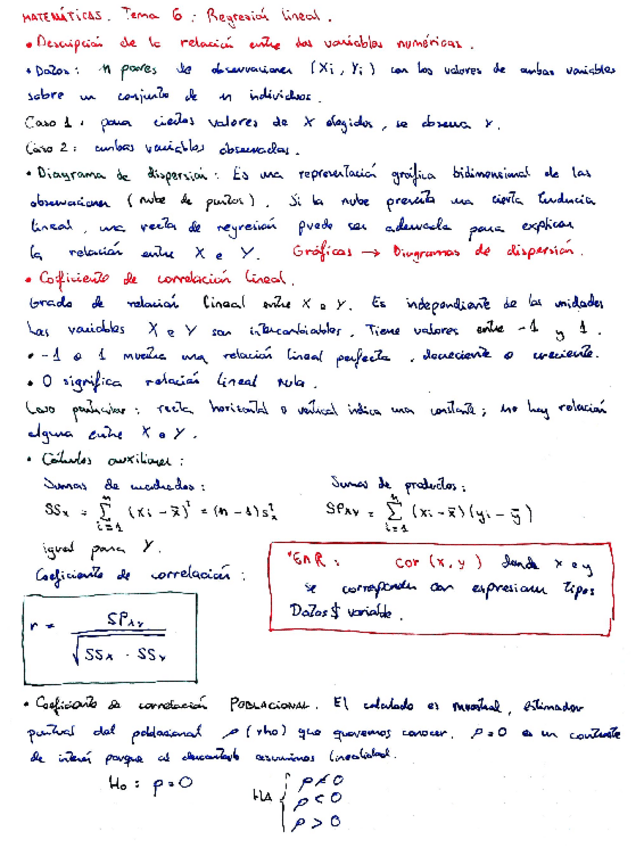 MATEMÁTICAS. Tema 6: Regresión lineal.
• Descripción de la relación entre dos variables numéricas.
• Datos: n pares de observaciones (Xi, Yi) con los valores de ambas variables
sobre un conjunto de n individuos.
Caso 1: para ciertos valores de X elegidos, se observa Y.
Caso 2: ambas variables observadas.
• Diagrama de dispersión: Es una representación gráfica bidimensional de las
observaciones (nube de puntos). Si la nube presenta una cierta tendencia
lineal, una recta de regresión puede ser adecuada para explicar
la relación entre X e Y. Gráficas → Diagramas de dispersión.
• Coeficiente de correlación lineal.
Grado de relación lineal entre X e Y. Es independiente de las unidades
Las variables X e Y son intercambiables. Tiene valores entre -1 y 1.
• -1 o 1 muestra una relación lineal perfecta, decreciente o creciente.
• 0 significa relación lineal nula.
Caso particular: recta horizontal o vertical indica una constante; no hay relación
alguna entre X e Y.
• Cálculos auxiliares:
Sumas de cuadrados: Suma de productos:
SSx = Σ (xi - x̄)² = (n-1)s²x SPxy = Σ (xi - x̄)(yi - ȳ)
n i=1 n i=1
igual para Y.
Coeficiente de correlación:
*En R: cor (x, y) donde x e y
se corresponden con expresiones tipos
Datos$variable.
r = SPxy / √SSx · SSy
• Coeficiente de correlación POBLACIONAL. El calculado es muestral, estimador
puntual del poblacional ρ (rho) que queremos conocer. ρ=0 es un contraste
de interés porque al descartarlo asumimos linealidad.
Ho: ρ=0 HA { ρ≠0
ρ<0
ρ>0